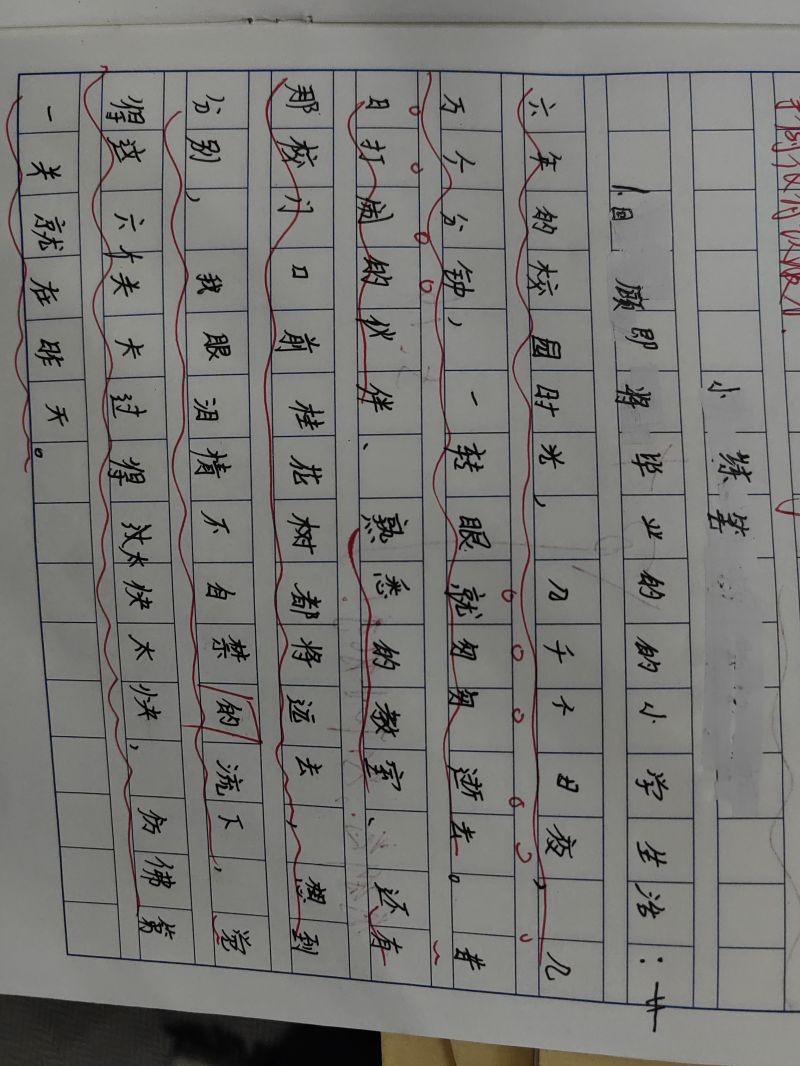 小练笔
1.回顾即将毕业的的小学生活：
六年的校园时光，几千个日夜，几
万个分钟，一转眼就匆匆逝去。昔
日打闹的伙伴、熟悉的教室、还有
那校门口前桂花树都将远去，想到
分别，我眼泪情不自禁的流下，觉
得这六个关卡过得太快太快，仿佛第
一关就在昨天。